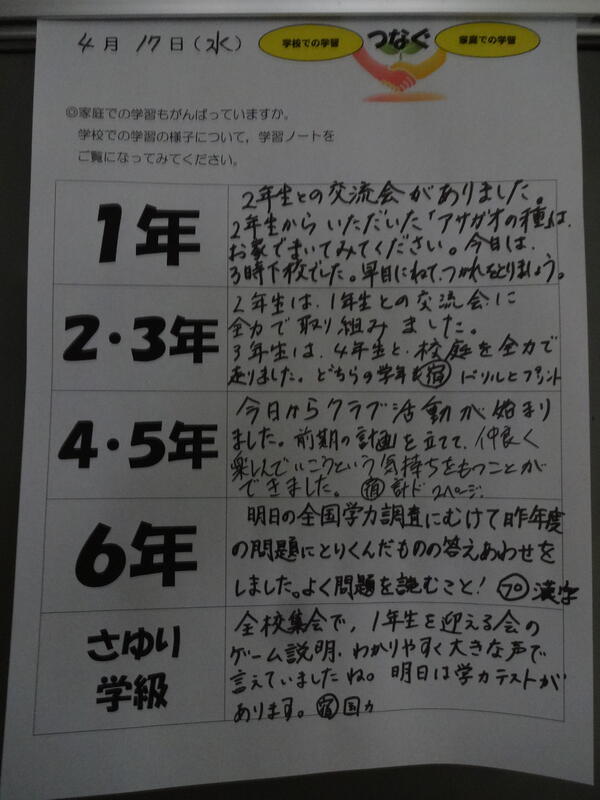 4月 17日(水)
学校での学習 つなぐ 家庭での学習
◎家庭での学習もがんばっていますか。
学校での学習の様子について，学習ノートを
ご覧になってみてください。
1年
2年生との交流会がありました。
2年生からいただいた「アサガオの種」は、
お家でまいてみてください。今日は、
3時下校でした。早目にねて、つかれをとりましょう。
2・3年
2年生は、1年生との交流会に
全力で取り組みました。
3年生は、4年生と、校庭を全力で
走りました。どちらの学年も宿ドリルとプリント
4・5年
今日からクラブ活動が始まり
ました。前期の計画を立てて、仲良く
楽しんでいこうという気持ちをもつことが
できました。 宿 計ド 2ページ
6年
明日の全国学力調査にむけて昨年度
の問題にとりくんだものの答えあわせを
しました。よく問題を読むこと! プ 漢字
さゆり
学級
全校集会で、1年生を迎える会の
ゲーム説明、わかりやすく大きな声で
言えていましたね。明日は学力テストが
あります。宿国力